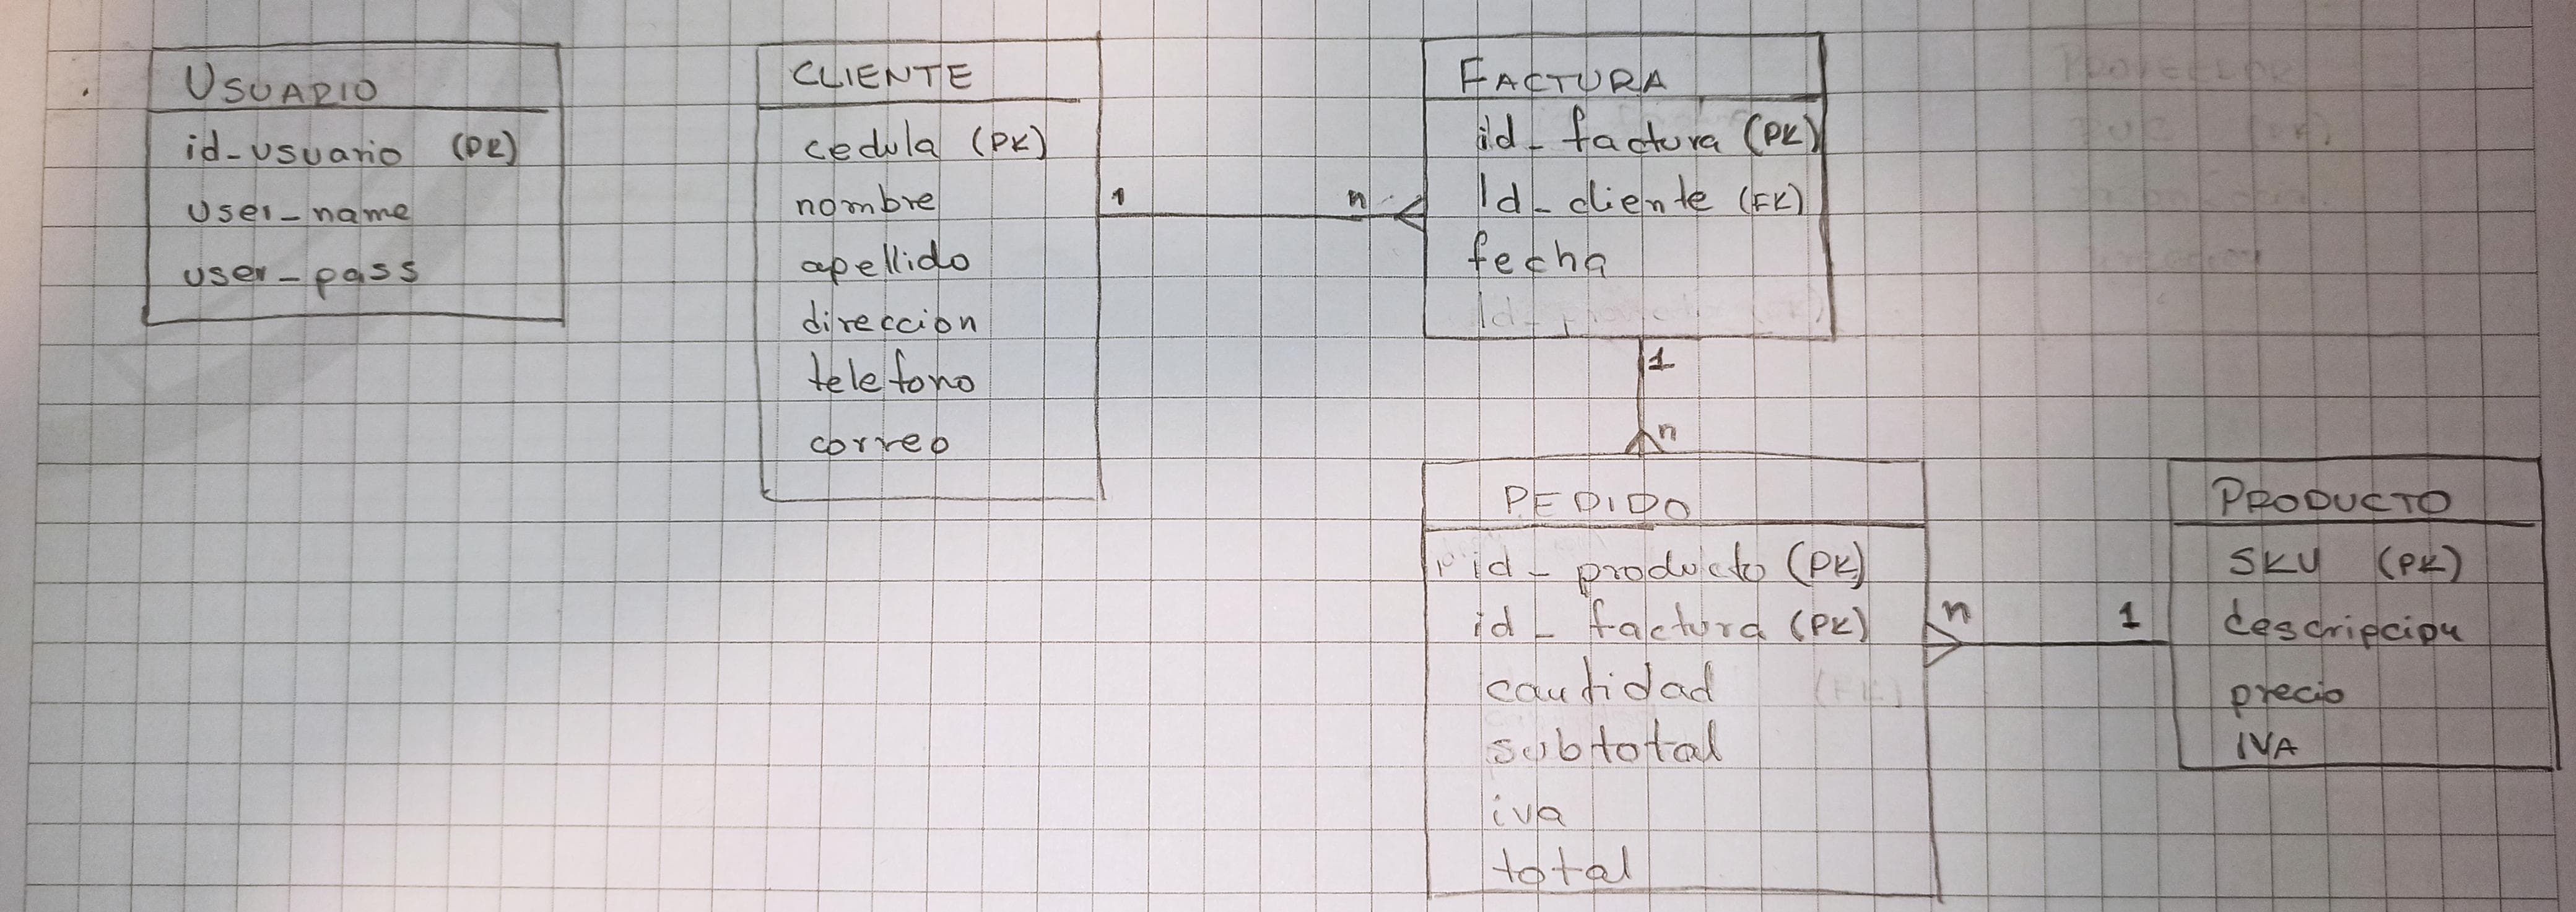 USUARIO
id_usuario (PK)
user_name
user_pass
CLIENTE
cedula (PK)
nombre
apellido
direccion
telefono
correo
1
n
FACTURA
id_factura (PK)
Id_cliente (FK)
fecha
1
n
PEDIDO
id_producto (PK)
id_factura (PK)
cantidad
subtotal
iva
total
n
1
PRODUCTO
SKU (PK)
descripcion
precio
IVA